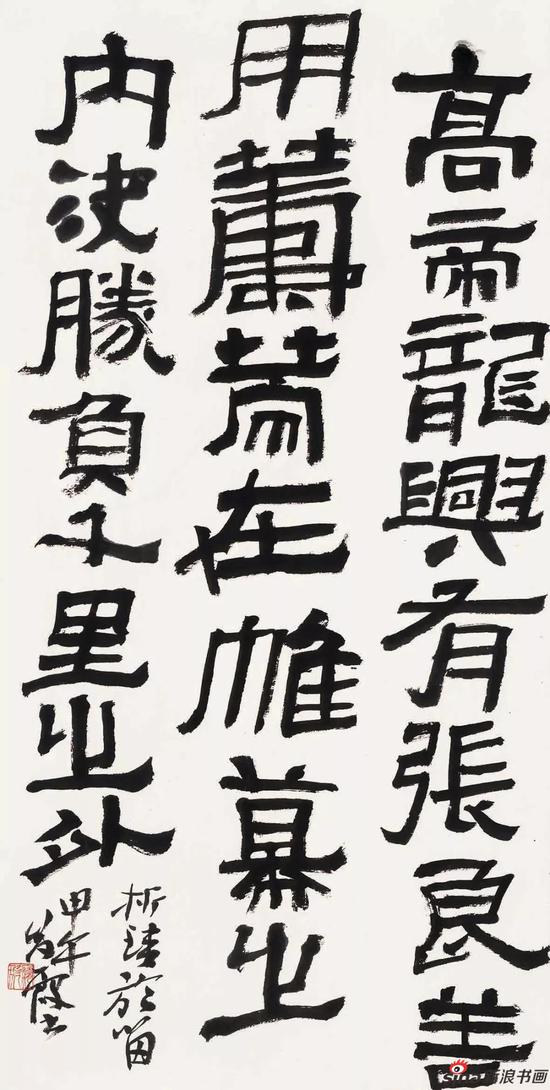 高帝龍興有張良善
用籌策在帷幕之
內決勝負千里之外
析珪於留
甲午
sina新浪书画